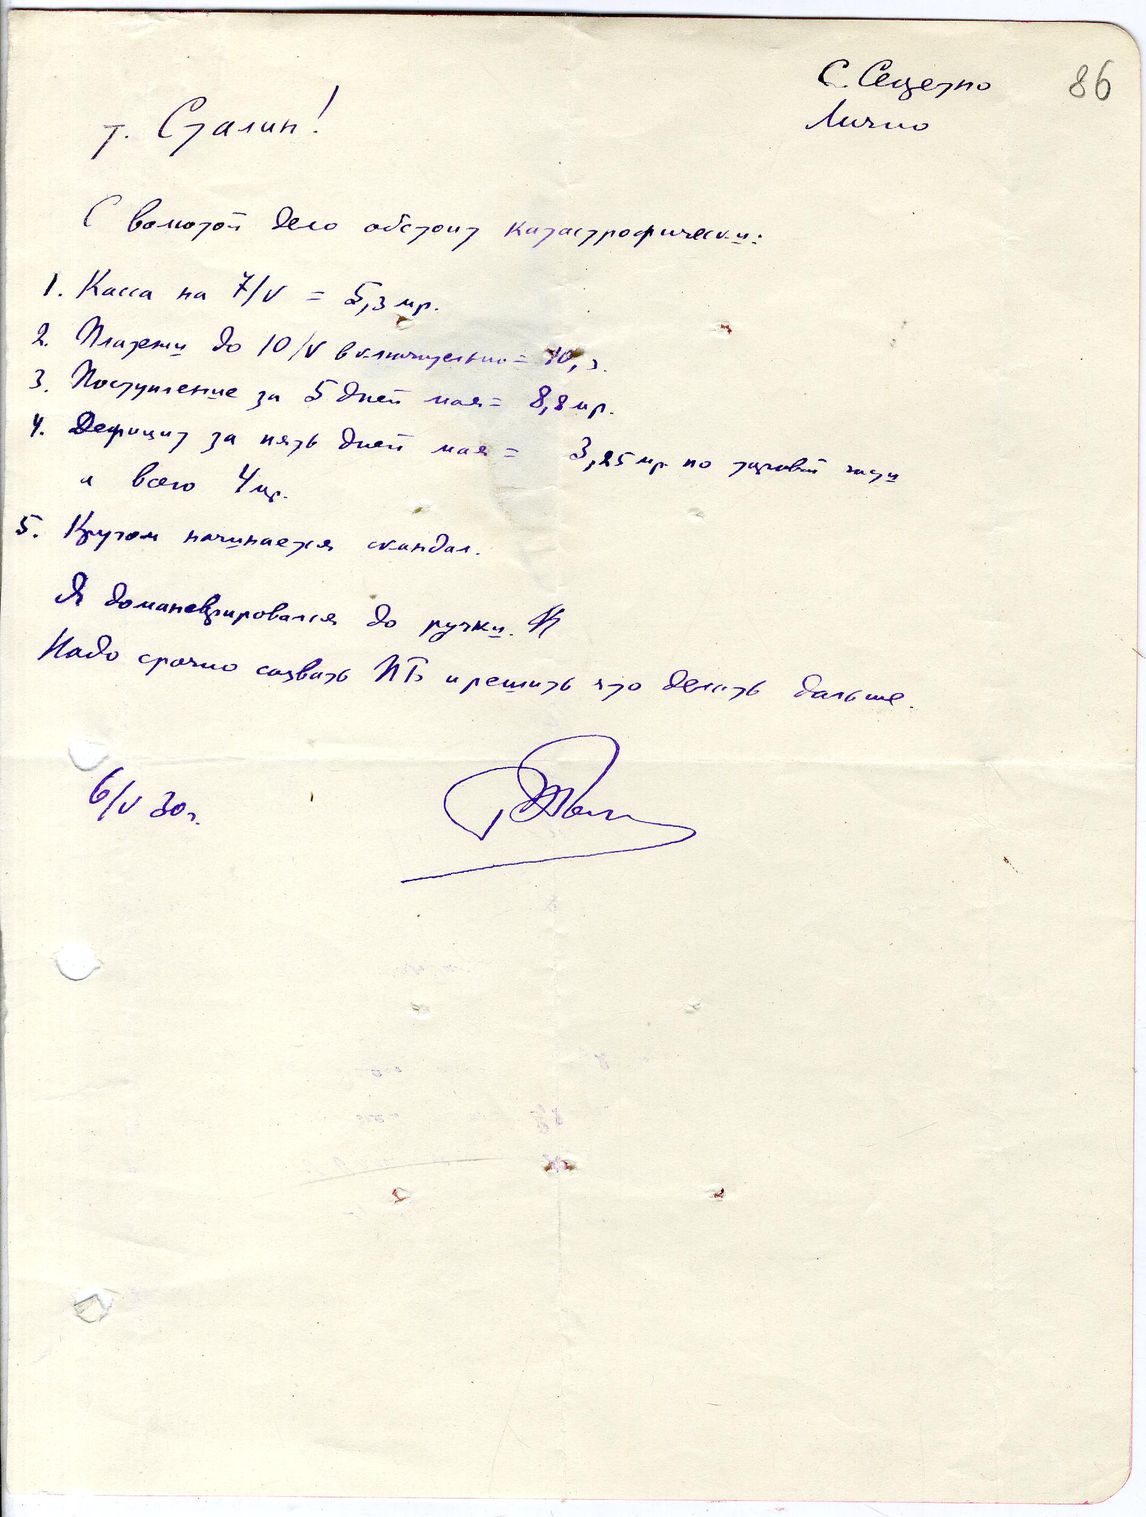 С. Секретно
86
Лично
т. Сталин!
С валютой дело обстоит катастрофически:
1. Касса на 7/V = 5,3 мр.
2. Платежи до 10/V включительно = 10,3.
3. Поступление за 5 дней мая = 8,8 мр.
4. Дефицит за пять дней мая = 3,25 мр. по торговой части
и всего 4 мр.
5. Кругом начинается скандал.
Я доманеврировался до ручки.
Надо срочно созвать ПБ и решить что делать дальше.
6/V 30 г.